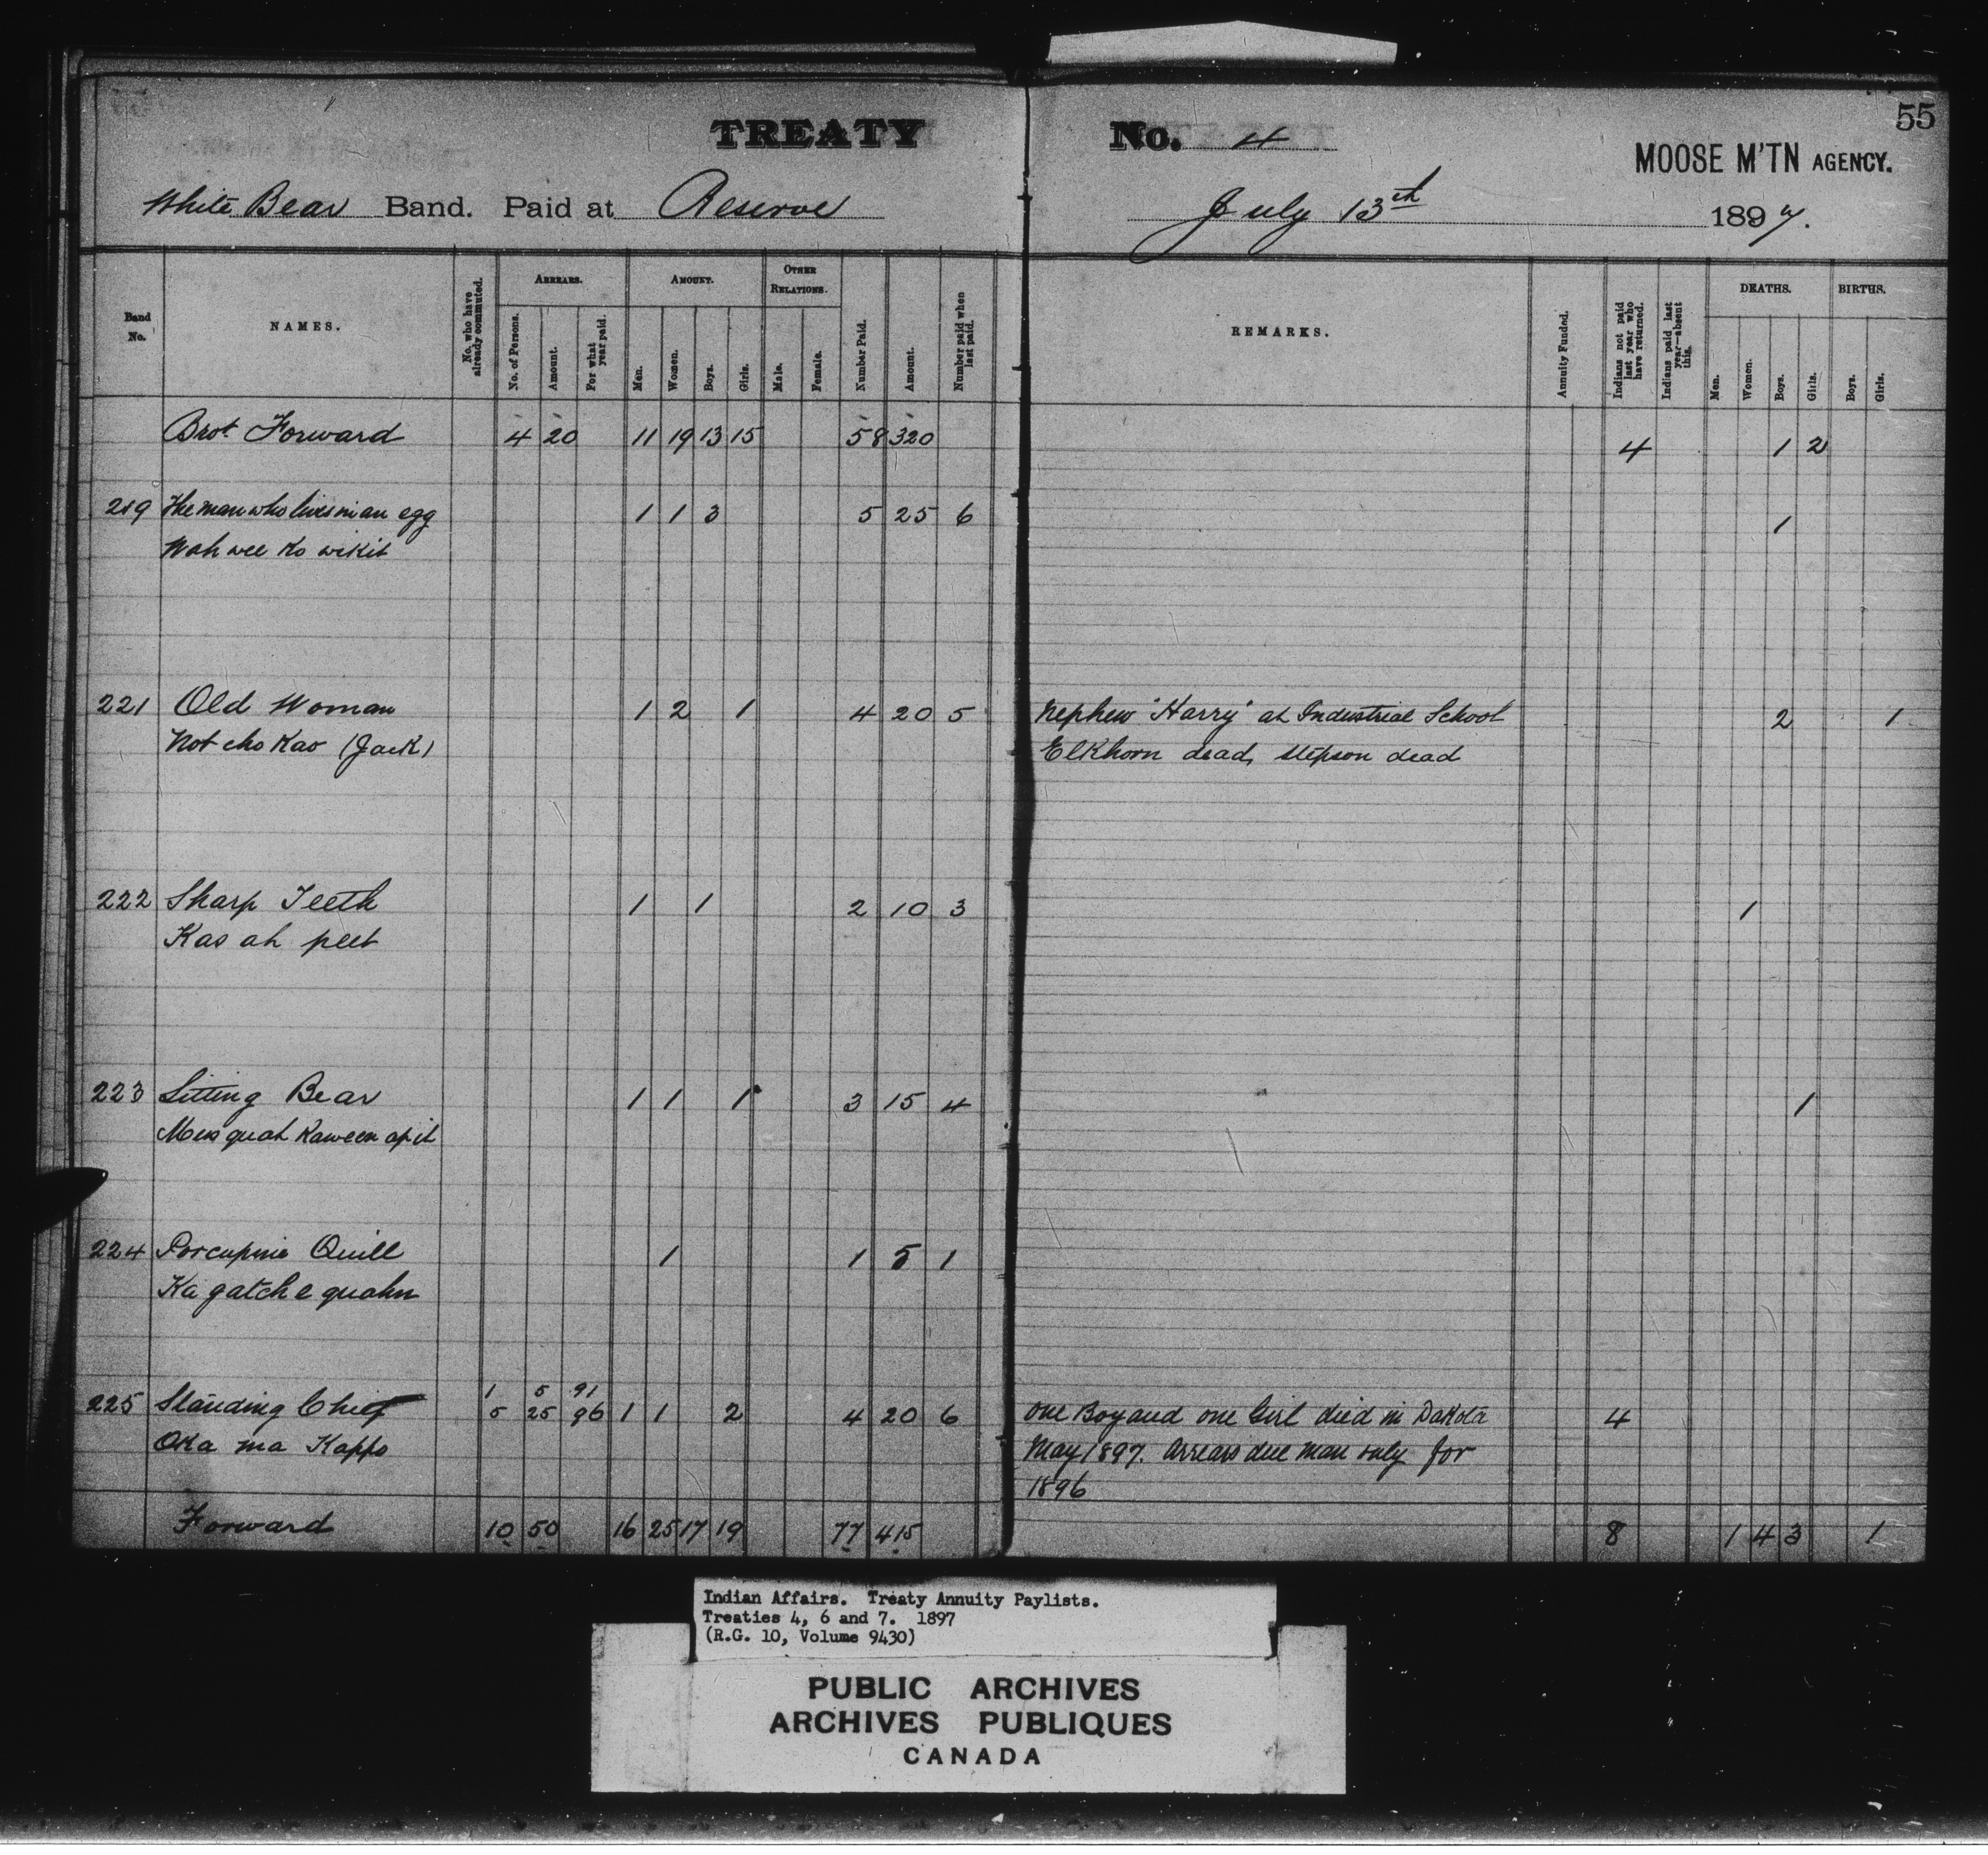 55
TREATY No. 4
MOOSE M'TN AGENCY.
White Bear Band. Paid at Reserve July 13th 1897.
Band No.
NAMES.
No. who have already commuted.
ARREARS.
No. of Persons.
Amount.
For what year paid.
AMOUNT.
Men.
Women.
Boys.
Girls.
OTHER RELATIONS.
Male.
Female.
Number Paid.
Amount.
Number paid when last paid.
REMARKS.
Annuity Funded.
Indians not paid last year who have returned.
Indians paid last year—absent this.
DEATHS.
Men.
Women.
Boys.
Girls.
BIRTHS.
Boys.
Girls.
Brot Forward 4 20 11 19 13 15 58 320 4 1 2
219 The man who lives in an egg 1 1 3 5 25 6 1
Wah wee ko wikit
221 Old Woman 1 2 1 4 20 5 Nephew "Harry" at Industrial School 2 1
Not cho Kao (Jack) Elkhorn dead, stepson dead
222 Sharp Teeth 1 1 2 10 3 1
Kas ah peet
223 Sitting Bear 1 1 1 3 15 4 1
Mus quah Kaween apit
224 Porcupine Quill 1 1 5 1
Ka gatch e quahn
1 5 91
225 Standing Chief 5 25 96 1 1 2 4 20 6 One Boy and one Girl died in Dakota 4
Oka ma Kappo May 1897. Arrears due man only for
1896
Forward 10 50 16 25 17 19 77 415 8 1 4 3 1
Indian Affairs. Treaty Annuity Paylists.
Treaties 4, 6 and 7. 1897
(R.G. 10, Volume 9430)
PUBLIC ARCHIVES
ARCHIVES PUBLIQUES
CANADA